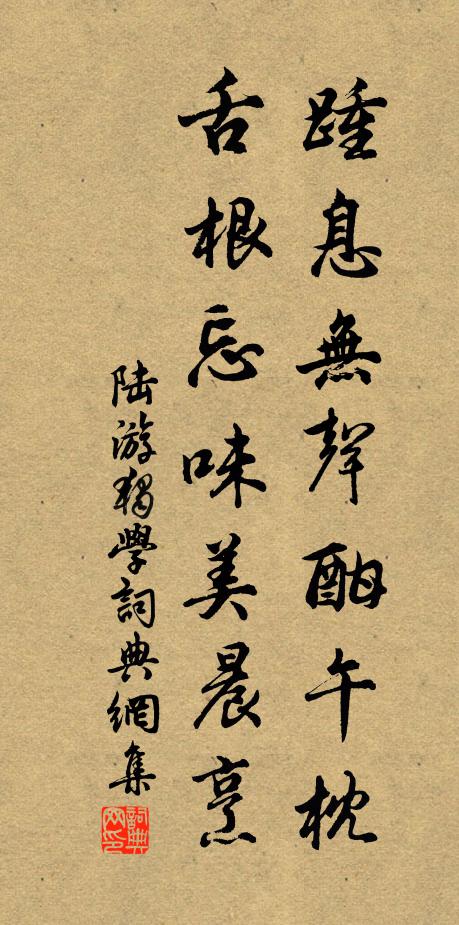 踵息無聲酣午枕
舌根忘味美晨烹
陸游獨學詞典網集
詞典網印